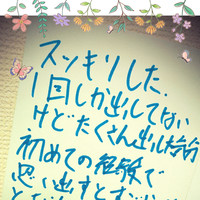 スッキリした.
1回しか出してない
けどたくさん出した分
初めての経験で
思い出すと